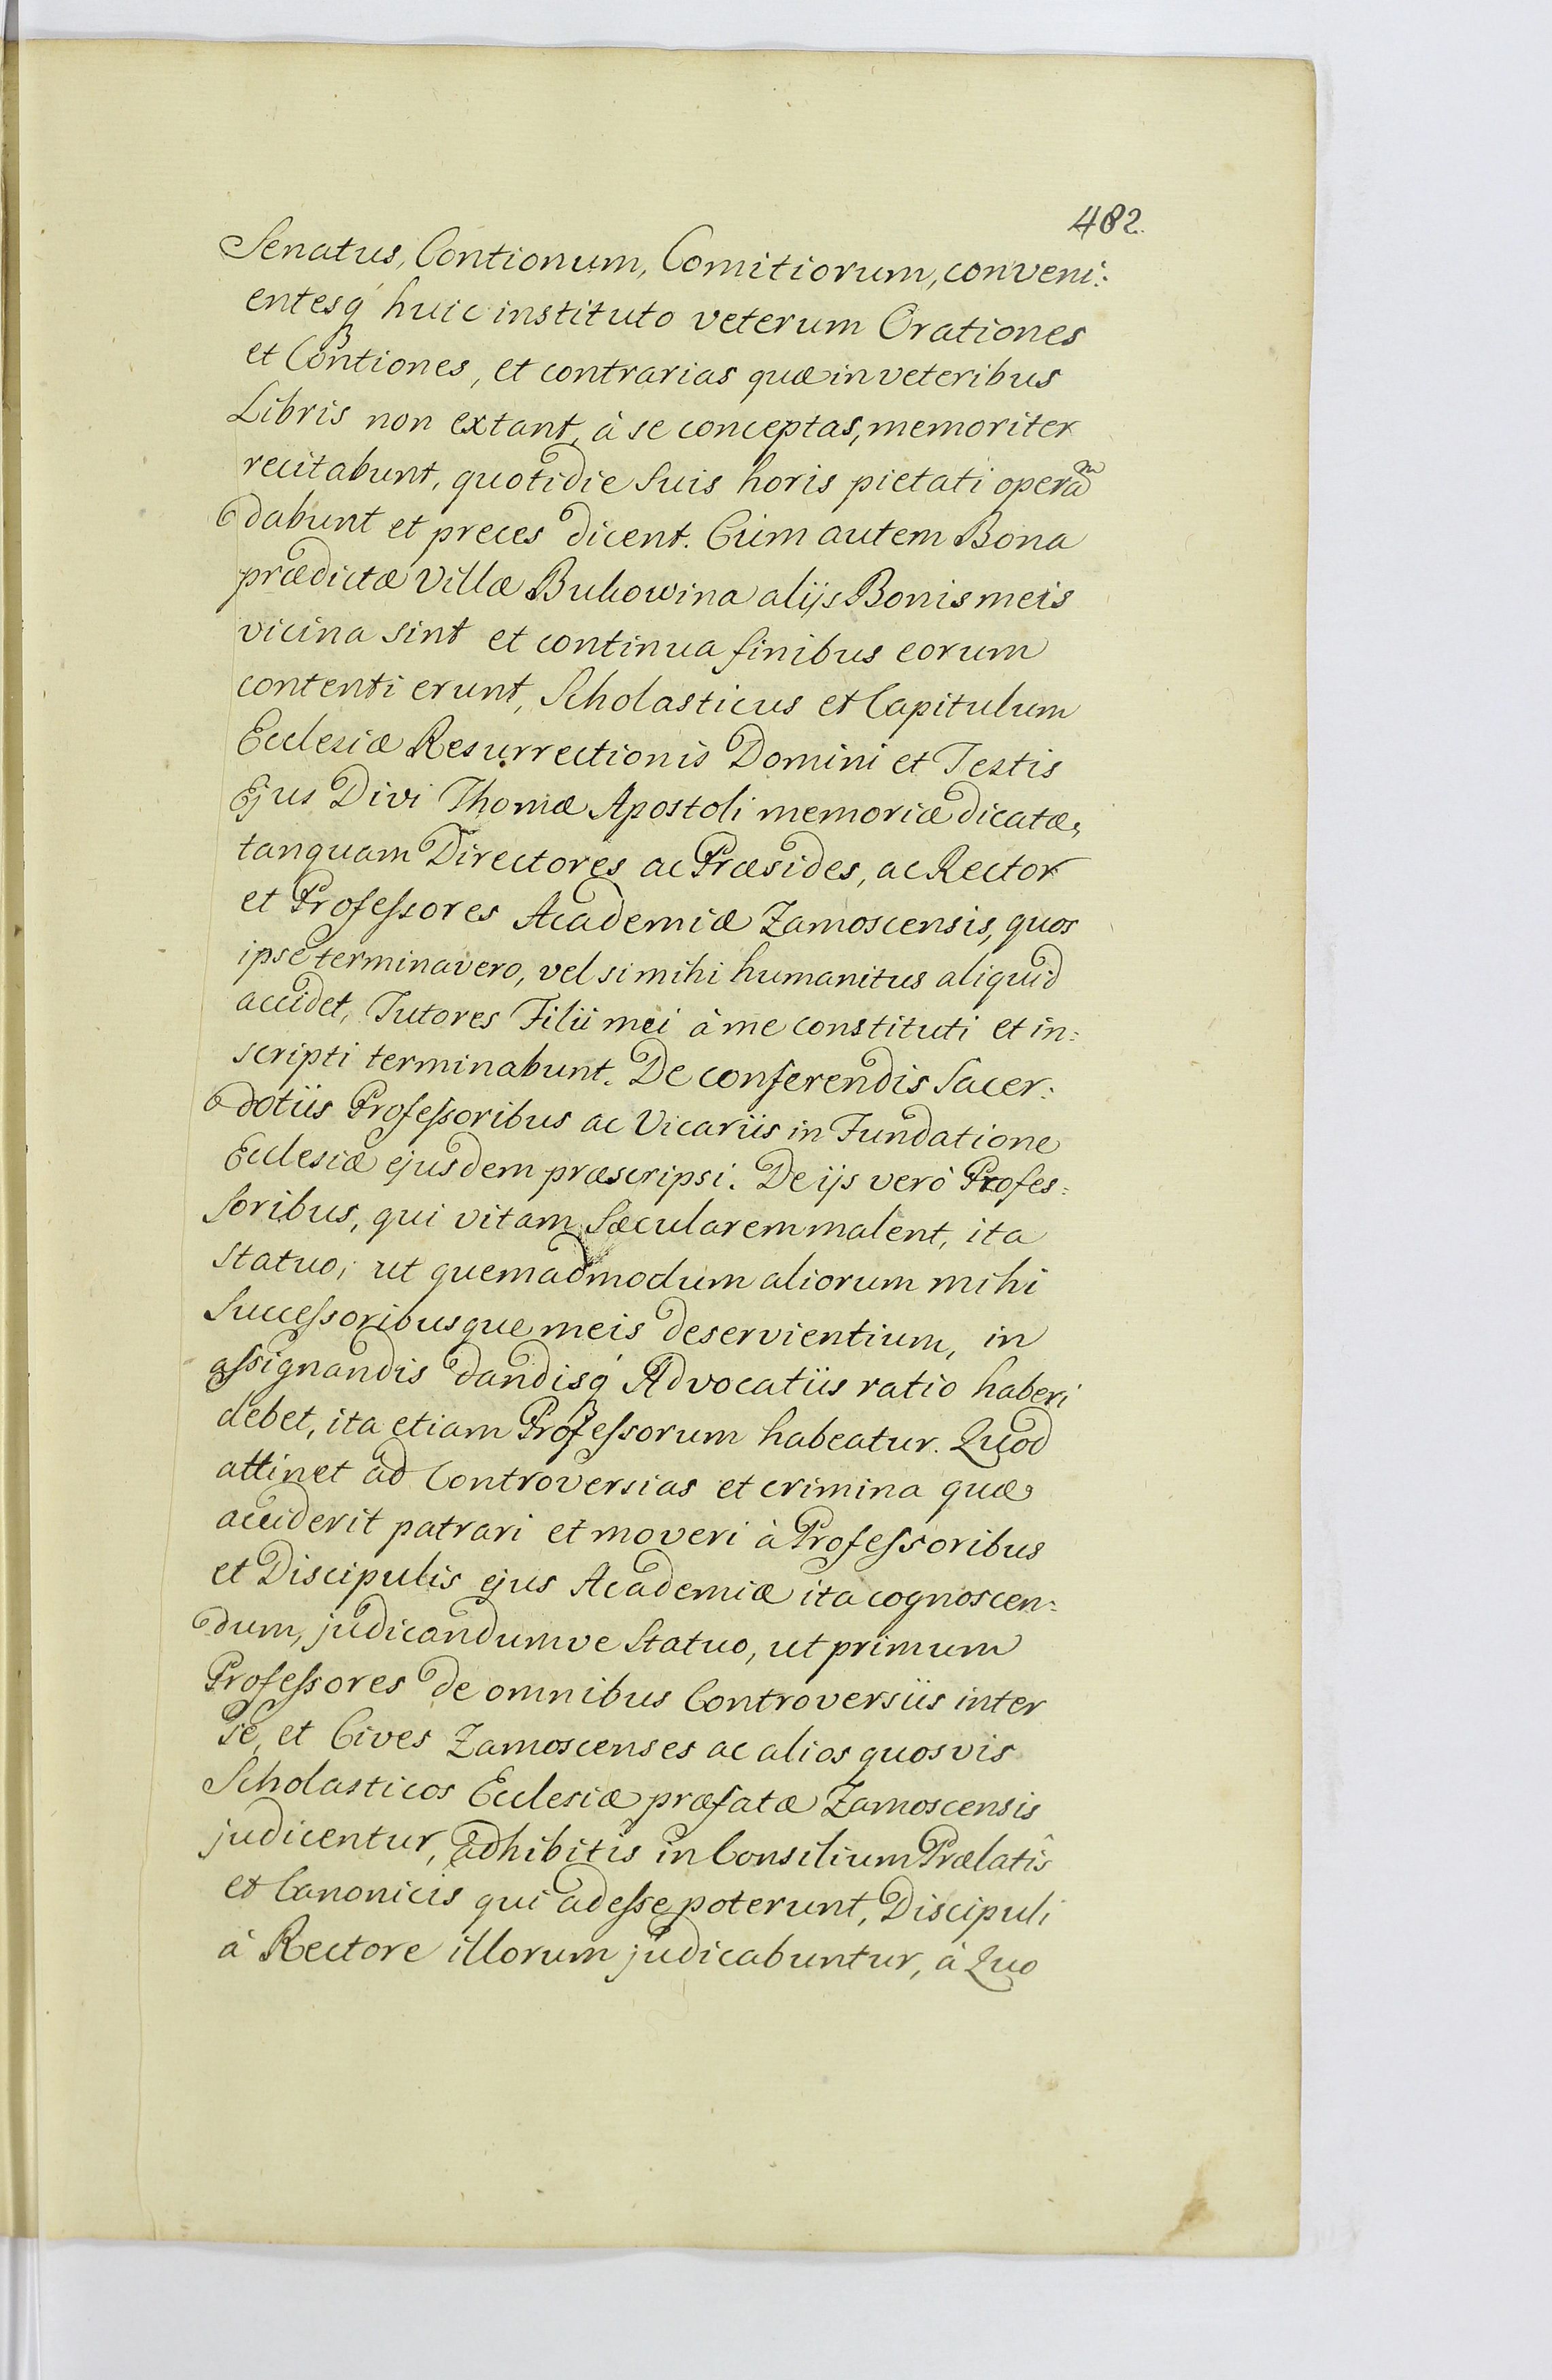 482.
Senatus, Contionum, Comitiorum, conveni:
entesq́ꝫ huic instituto veterum Orationes
et Contiones, et contrarias quæ in veteribus
Libris non extant, à se conceptas, memoriter
recitabunt, quotidie suis horis pietati operaᵐ
dabunt et preces dicent. Cùm autem Bona
prædictæ Villæ Bukowina alijs Bonis meis
vicina sint et continua finibus eorum
contenti erunt, Scholasticus et Capitulum
Ecclesiæ Resurrectionis Domini et Testis
Ejus Divi Thomæ Apostoli memoriæ dicatæ,
tanquam Directores ac Præsides, ac Rector
et Profeſsores Academiæ Zamoscensis, quos
ipse terminavero, vel si mihi humanitus aliquid
accidet, Tutores Filii mei à me constituti et in:
scripti terminabunt. De conferendis Sacer:
dotiis Profeſsoribus ac Vicariis in Fundatione
Ecclesiæ ejusdem præscripsi. De ijs verò Profes:
soribus, qui vitam Sæcularem malent, ita
statuo, ut quemadmodum aliorum mihi
Succeſsoribusque meis deservientium, in
aſsignandis dandisq́ꝫ Advocatiis ratio haberi
debet, ita etiam Profeſsorum habeatur. Quod
attinet ad Controversias et crimina quæ
acciderit patrari et moveri à Profeſsoribus
et Discipulis ejus Academiæ ita cognoscen:
dum, judicandumve Statuo, ut primum
Profeſsores de omnibus Controversiis inter
se, et Cives Zamoscenses ac alios quosvis
Scholasticos Ecclesiæ præfatæ Zamoscensis
judicentur, adhibitis in Consilium Prælatîs
et Canonicis qui adeſse poterunt, Discipuli
à Rectore illorum judicabuntur, à Quo